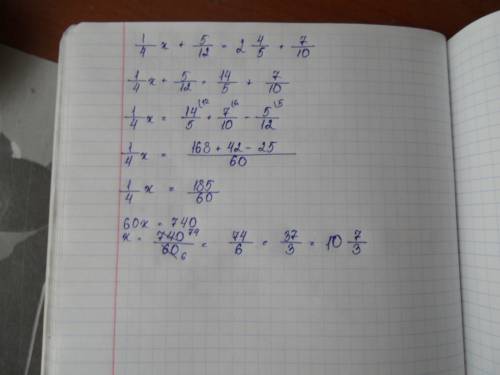 1/4 x + 5/12 = 2 4/5 + 7/10
1/4 x + 5/12 = 14/5 + 7/10
1/4 x = 14/5 \12 + 7/10 \6 - 5/12 \5
1/4 x = 168 + 42 - 25 / 60
1/4 x = 185/60
60x = 740
x = 740 74 / 60 6 = 74/6 = 37/3 = 10 7/3